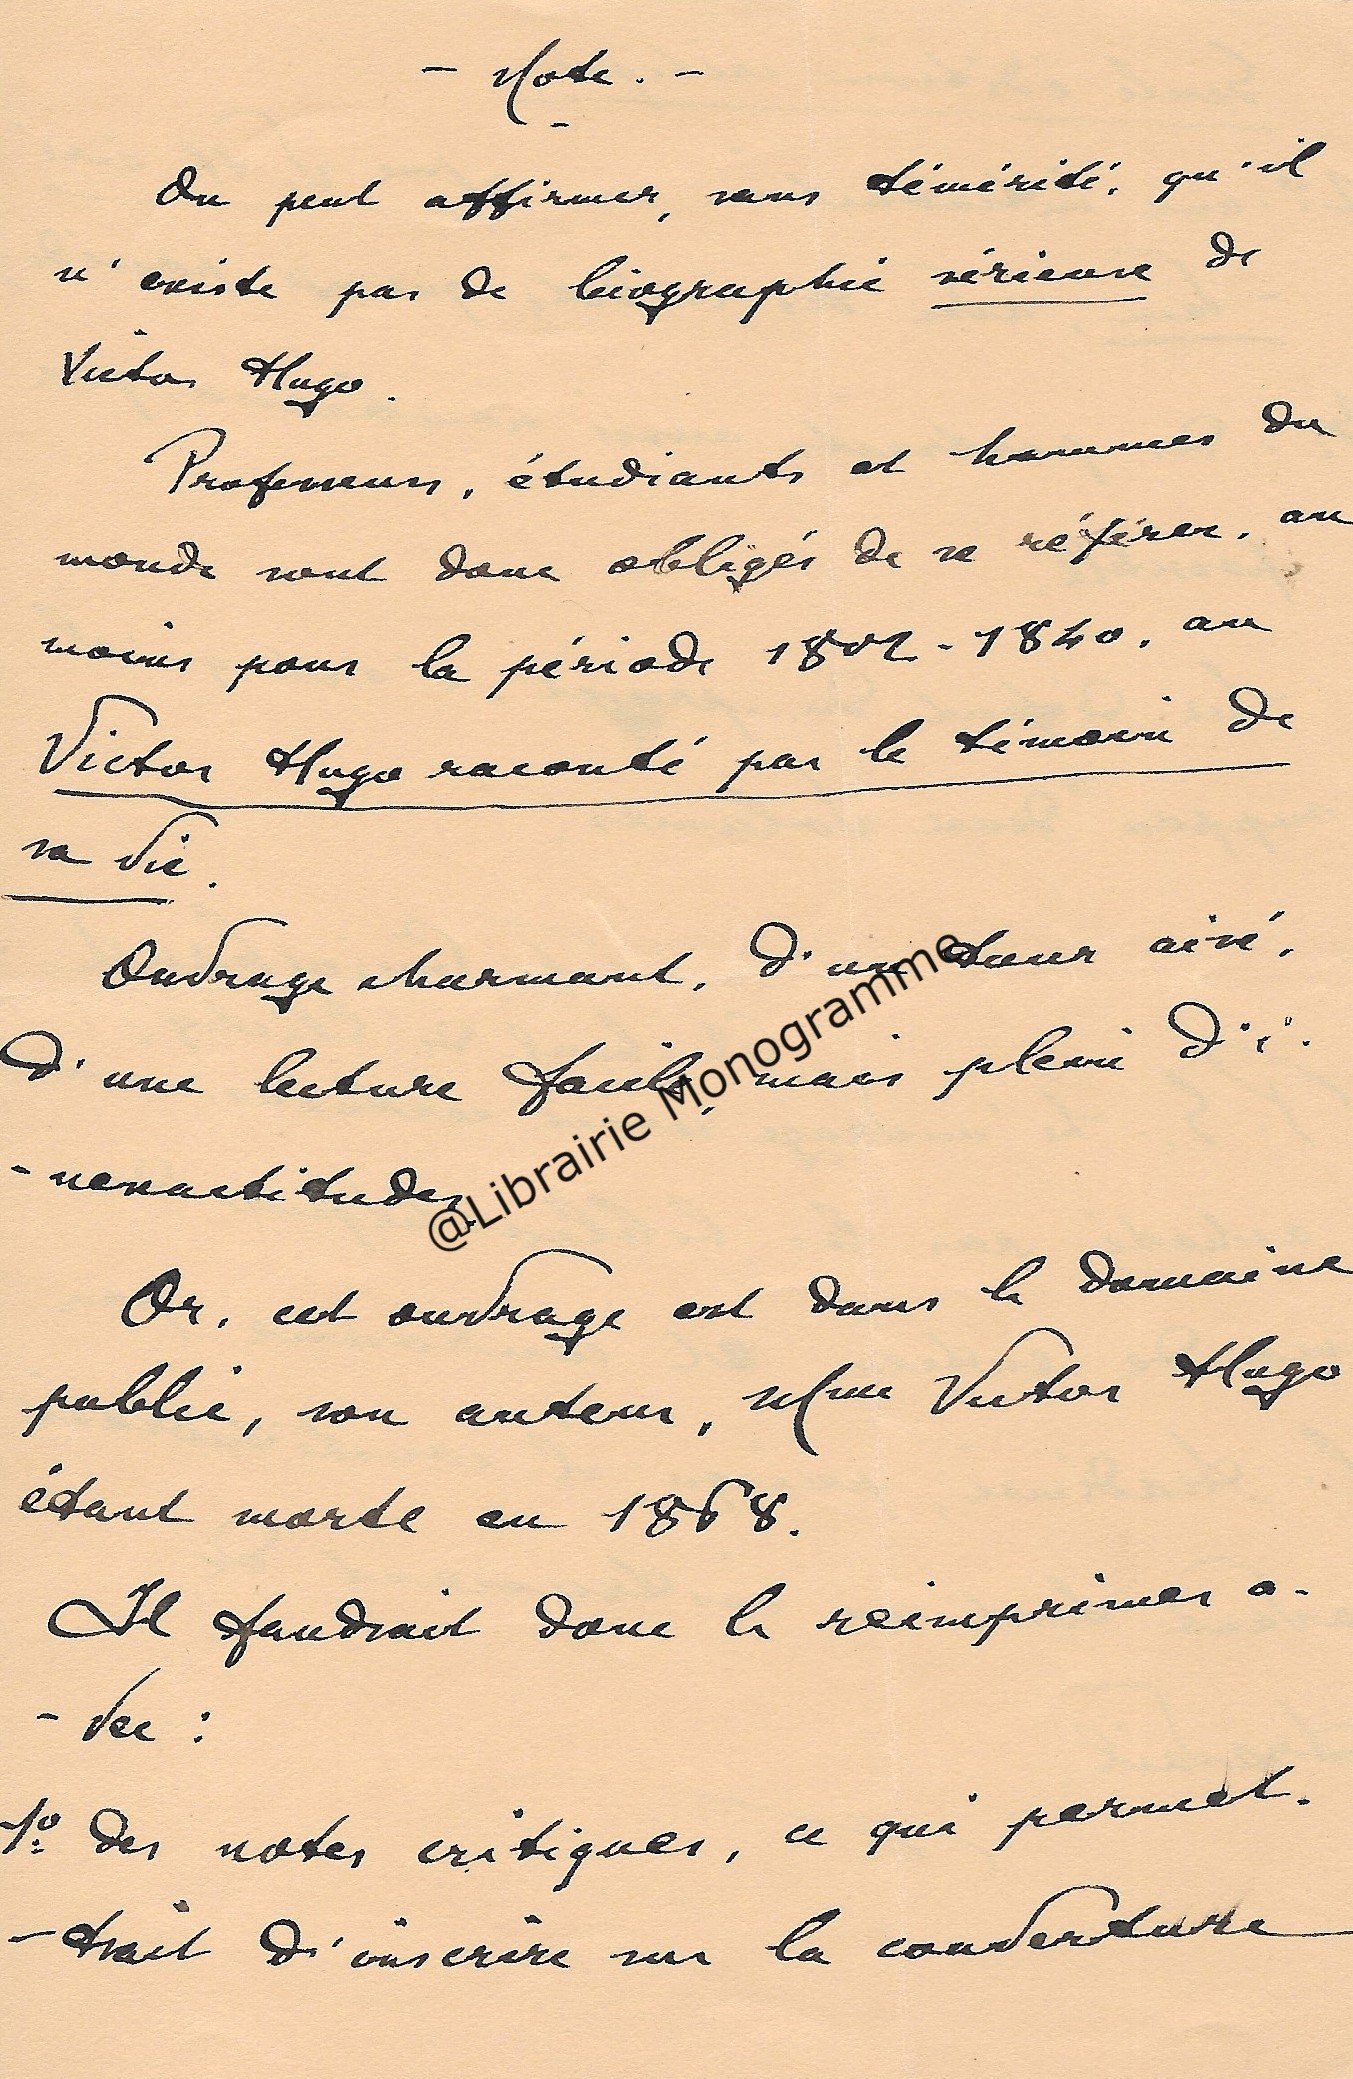 - Note. -
On peut affirmer, sans témérité, qu'il
n'existe pas de biographie sérieuse de
Victor Hugo.
Professeurs, étudiants et hommes du
monde sont donc obligés de se référer, au
moins pour la période 1802-1840, au
Victor Hugo raconté par le témoin de
sa vie.
Ouvrage charmant, d'un tour aisé,
d'une lecture facile, mais plein d'i-
-nexactitudes.
@Librairie Monogramme
Or, cet ouvrage est dans le domaine
public, son auteur, Mme Victor Hugo
étant morte en 1868.
Il faudrait donc le réimprimer a-
-vec :
1º des notes critiques, ce qui permet-
-trait d'inscrire sur la couverture